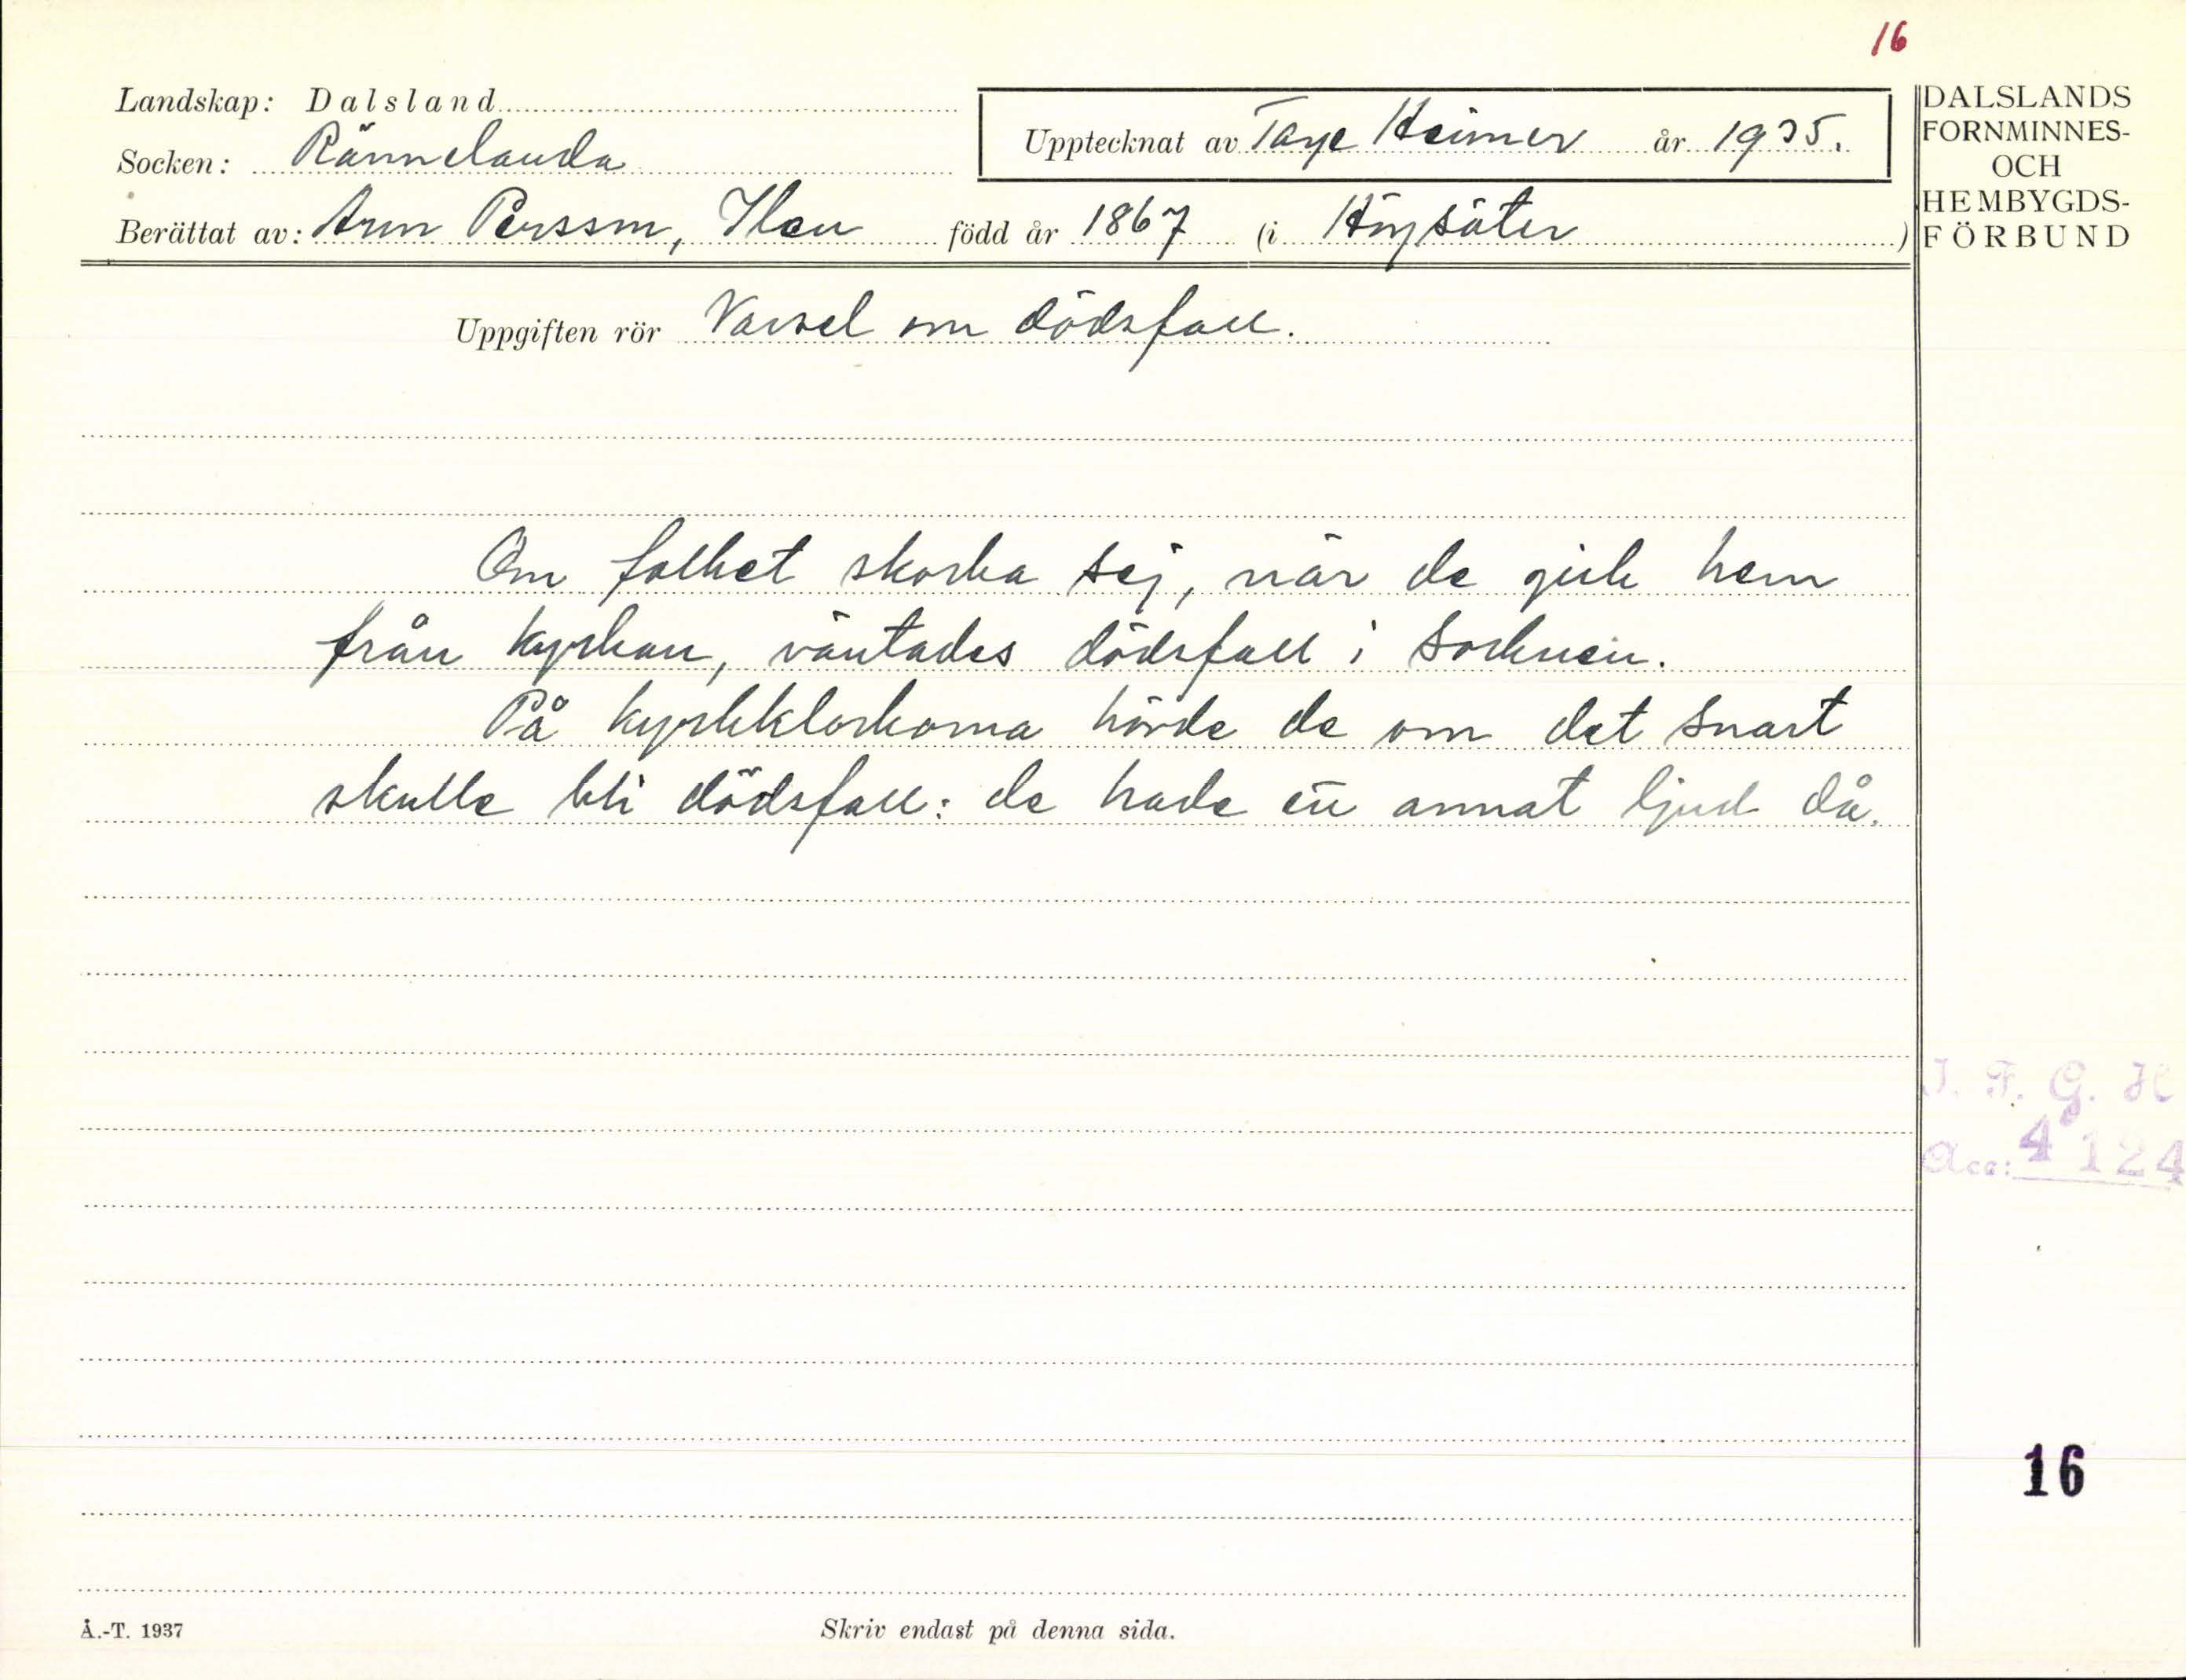 16
Landskap: Dalsland
Socken: Rännelanda
Upptecknat av Tage Heimer år 1935.
Berättat av: Aron Persson, Ilen född år 1867 (i Högsäter)
DALSLANDS
FORNMINNES-
OCH
HEMBYGDS-
FÖRBUND
Uppgiften rör Varsel om dödsfall.
Om folket skocka sej, när de gick hem
från kyrkan, väntades dödsfall i socknen.
På kyrkklockorna hörde de om det snart
skulle bli dödsfall: de hade ett annat ljud då.
I. F. G. H
Acc: 4124
16
Å.-T. 1937
Skriv endast på denna sida.